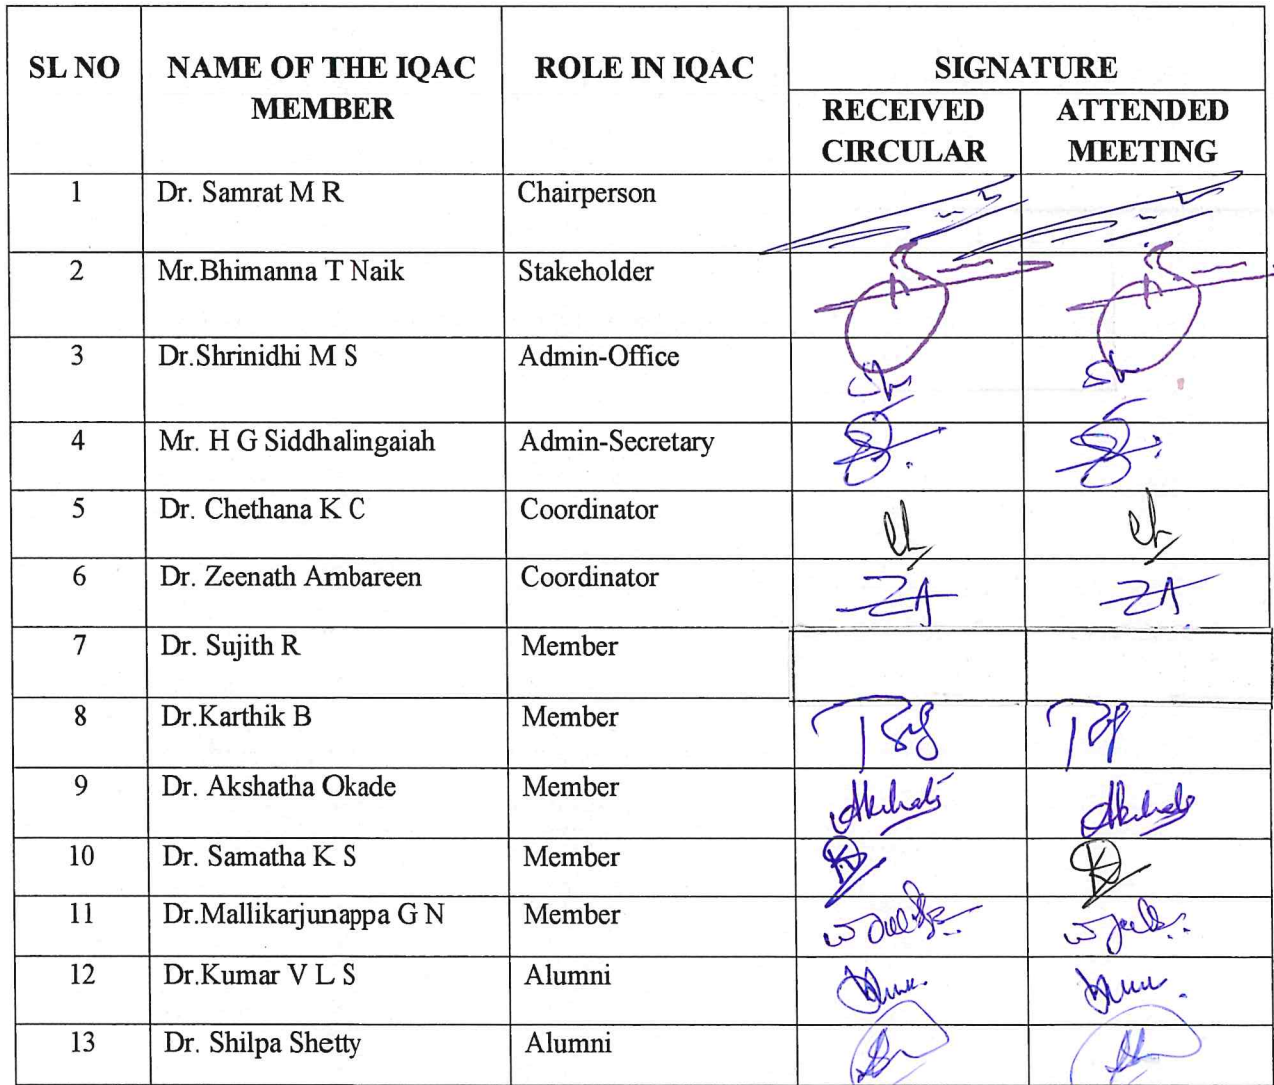 SL NO NAME OF THE IQAC MEMBER ROLE IN IQAC SIGNATURE
RECEIVED CIRCULAR ATTENDED MEETING
1 Dr. Samrat M R Chairperson
2 Mr.Bhimanna T Naik Stakeholder
3 Dr.Shrinidhi M S Admin-Office
4 Mr. H G Siddhalingaiah Admin-Secretary
5 Dr. Chethana K C Coordinator
6 Dr. Zeenath Ambareen Coordinator ZA ZA
7 Dr. Sujith R Member
8 Dr.Karthik B Member
9 Dr. Akshatha Okade Member
10 Dr. Samatha K S Member
11 Dr.Mallikarjunappa G N Member
12 Dr.Kumar V L S Alumni
13 Dr. Shilpa Shetty Alumni